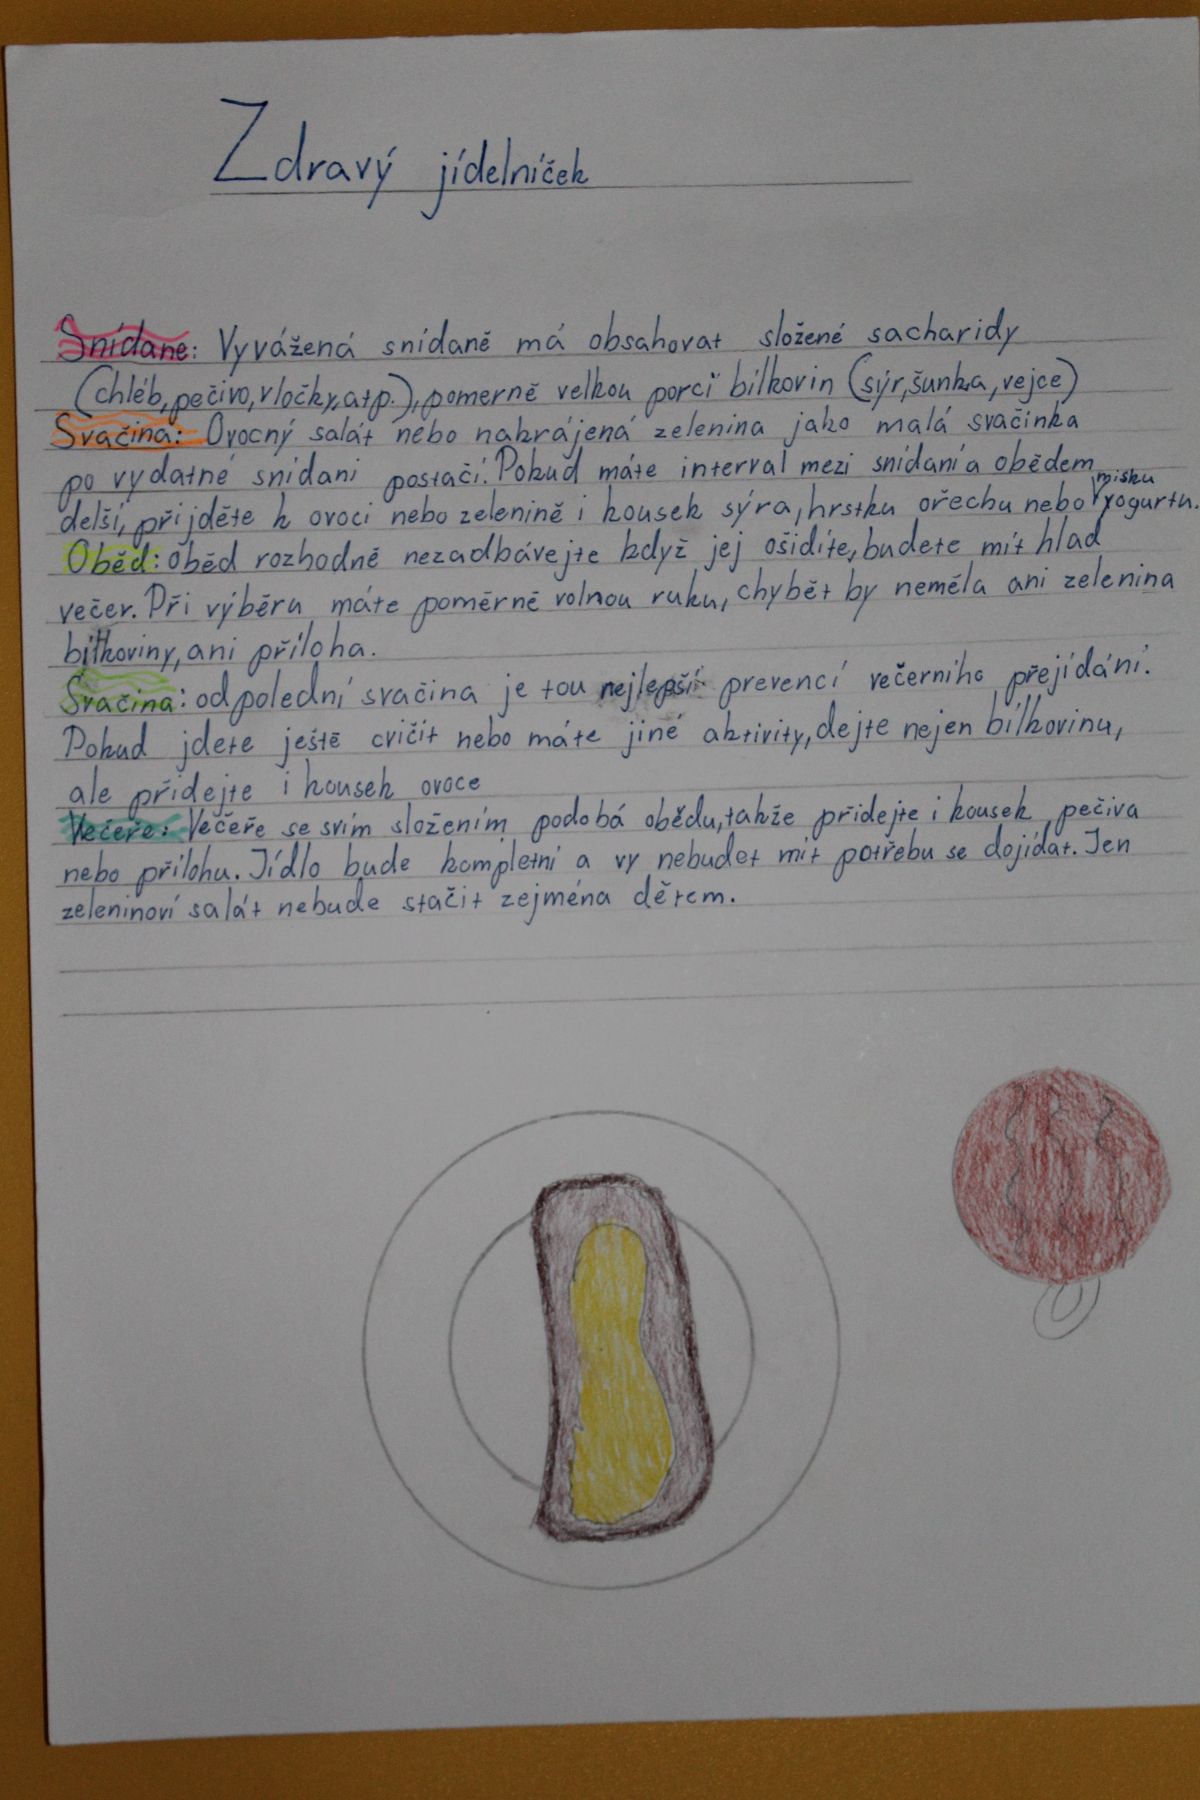 Zdravý jídelníček
Snídaně: Vyvážená snídaně má obsahovat složené sacharidy
(chléb, pečivo, vločky, atp.), pomerně velkou porci bílkovin (sýr, šunka, vejce)
Svačina: Ovocný salát nebo nakrájená zelenina jako malá svačinka
po vydatné snídani postačí. Pokud máte interval mezi snídaní a obědem
delší, přijděte k ovoci nebo zelenině i kousek sýra, hrstku ořechu nebo misku yogurtu.
Oběd: oběd rozhodně nezadbávejte když jej ošidíte, budete mít hlad
večer. Při výběru máte poměrně volnou ruku, chybět by neměla ani zelenina
bílkoviny, ani příloha.
Svačina: odpolední svačina je tou nejlepší prevencí večerního přejídání.
Pokud jdete ještě cvičit nebo máte jiné aktivity, dejte nejen bílkovinu,
ale přidejte i kousek ovoce
Večeře: Večeře se svím složením podobá obědu, takže přidejte i kousek pečiva
nebo přílohu. Jídlo bude kompletní a vy nebudet mít potřebu se dojídat. Jen
zeleninoví salát nebude stačit zejména dětem.